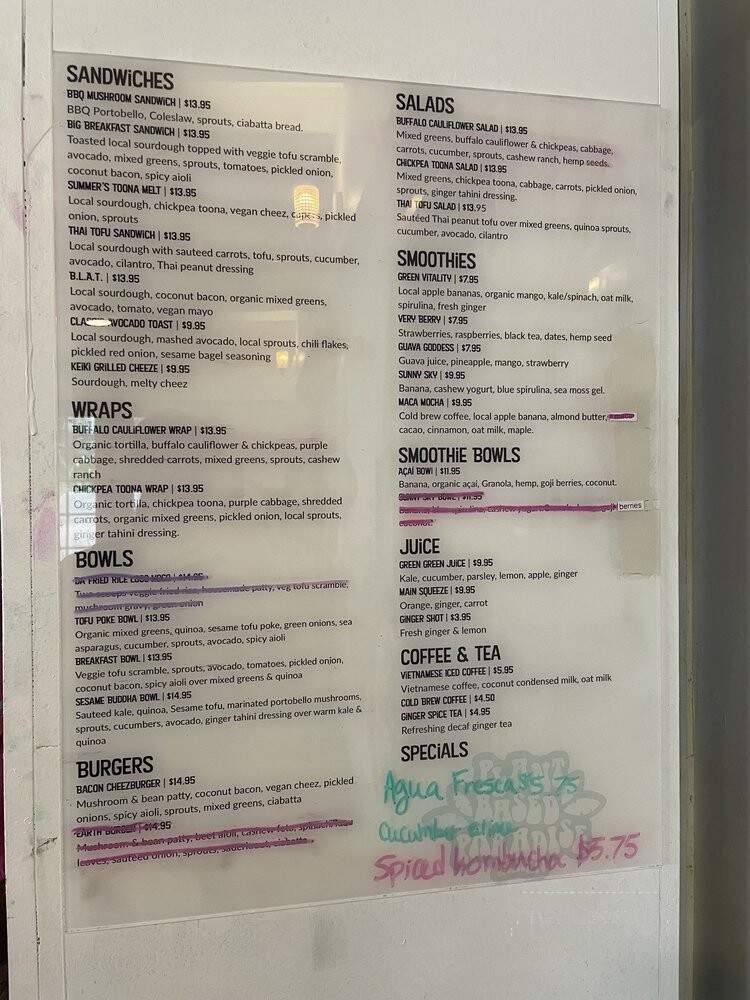 SANDWiCHES
BBQ MUSHROOM SANDWiCH | $13.95
BBQ Portobello, Coleslaw, sprouts, ciabatta bread.
BiG BREAKFAST SANDWiCH | $13.95
Toasted local sourdough topped with veggie tofu scramble,
avocado, mixed greens, sprouts, tomatoes, pickled onion,
coconut bacon, spicy aioli
SUMMER'S TOONA MELT | $13.95
Local sourdough, chickpea toona, vegan cheez, capers, pickled
onion, sprouts
THAI TOFU SANDWiCH | $13.95
Local sourdough with sauteed carrots, tofu, sprouts, cucumber,
avocado, cilantro, Thai peanut dressing
B.L.A.T. | $13.95
Local sourdough, coconut bacon, organic mixed greens,
avocado, tomato, vegan mayo
CLASSIC AVOCADO TOAST | $9.95
Local sourdough, mashed avocado, local sprouts, chili flakes,
pickled red onion, sesame bagel seasoning
KEiKi GRILLED CHEEZE | $9.95
Sourdough, melty cheez
WRAPS
BUFFALO CAULiFLOWER WRAP | $13.95
Organic tortilla, buffalo cauliflower & chickpeas, purple
cabbage, shredded carrots, mixed greens, sprouts, cashew
ranch
CHiCKPEA TOONA WRAP | $13.95
Organic tortilla, chickpea toona, purple cabbage, shredded
carrots, organic mixed greens, pickled onion, local sprouts,
ginger tahini dressing.
BOWLS
DA FRIED RICE LOCO MOCO | $14.95
Two scoops veggie fried rice, housemade patty, veg tofu scramble,
mushroom gravy, green onion
TOFU POKE BOWL | $13.95
Organic mixed greens, quinoa, sesame tofu poke, green onions, sea
asparagus, cucumber, sprouts, avocado, spicy aioli
BREAKFAST BOWL | $13.95
Veggie tofu scramble, sprouts, avocado, tomatoes, pickled onion,
coconut bacon, spicy aioli over mixed greens & quinoa
SESAME BUDDHA BOWL | $14.95
Sauteed kale, quinoa, Sesame tofu, marinated portobello mushrooms,
sprouts, cucumbers, avocado, ginger tahini dressing over warm kale &
quinoa
BURGERS
BACON CHEEZBURGER | $14.95
Mushroom & bean patty, coconut bacon, vegan cheez, pickled
onions, spicy aioli, sprouts, mixed greens, ciabatta
EARTH BURGER | $14.95
Mushroom & bean patty, beet aioli, cashew feta,
leaves, sauteed onion, sprouts, sauerkraut, ciabatta
SALADS
BUFFALO CAULiFLOWER SALAD | $13.95
Mixed greens, buffalo cauliflower & chickpeas, cabbage,
carrots, cucumber, sprouts, cashew ranch, hemp seeds.
CHiCKPEA TOONA SALAD | $13.95
Mixed greens, chickpea toona, cabbage, carrots, pickled onion,
sprouts, ginger tahini dressing.
THAI TOFU SALAD | $13.95
Sautéed Thai peanut tofu over mixed greens, quinoa sprouts,
cucumber, avocado, cilantro
SMOOTHiES
GREEN ViTALiTY | $7.95
Local apple bananas, organic mango, kale/spinach, oat milk,
spirulina, fresh ginger
VERY BERRY | $7.95
Strawberries, raspberries, black tea, dates, hemp seed
GUAVA GODDESS | $7.95
Guava juice, pineapple, mango, strawberry
SUNNY SKY | $9.95
Banana, cashew yogurt, blue spirulina, sea moss gel.
MACA MOCHA | $9.95
Cold brew coffee, local apple banana, almond butter,
cacao, cinnamon, oat milk, maple.
SMOOTHiE BOWLS
AÇAI BOWl | $11.95
Banana, organic açai, Granola, hemp, goji berries, coconut.
SUNNY SKY BOWL | $11.95
Banana, blue spirulina, cashew yogurt, Granola, hemp, goji berries
coconut.
JUiCE
GREEN GREEN JUiCE | $9.95
Kale, cucumber, parsley, lemon, apple, ginger
MAIN SQUEEZE | $9.95
Orange, ginger, carrot
GINGER SHOT | $3.95
Fresh ginger & lemon
COFFEE & TEA
VIETNAMESE ICED COFFEE | $5.95
Vietnamese coffee, coconut condensed milk, oat milk
COLD BREW COFFEE | $4.50
GINGER SPICE TEA | $4.95
Refreshing decaf ginger tea
SPECiALS
Agua Fresca $5.75
Cucumber Lime
Spiced Kombucha $5.75
PLANT
BASED
PARADISE